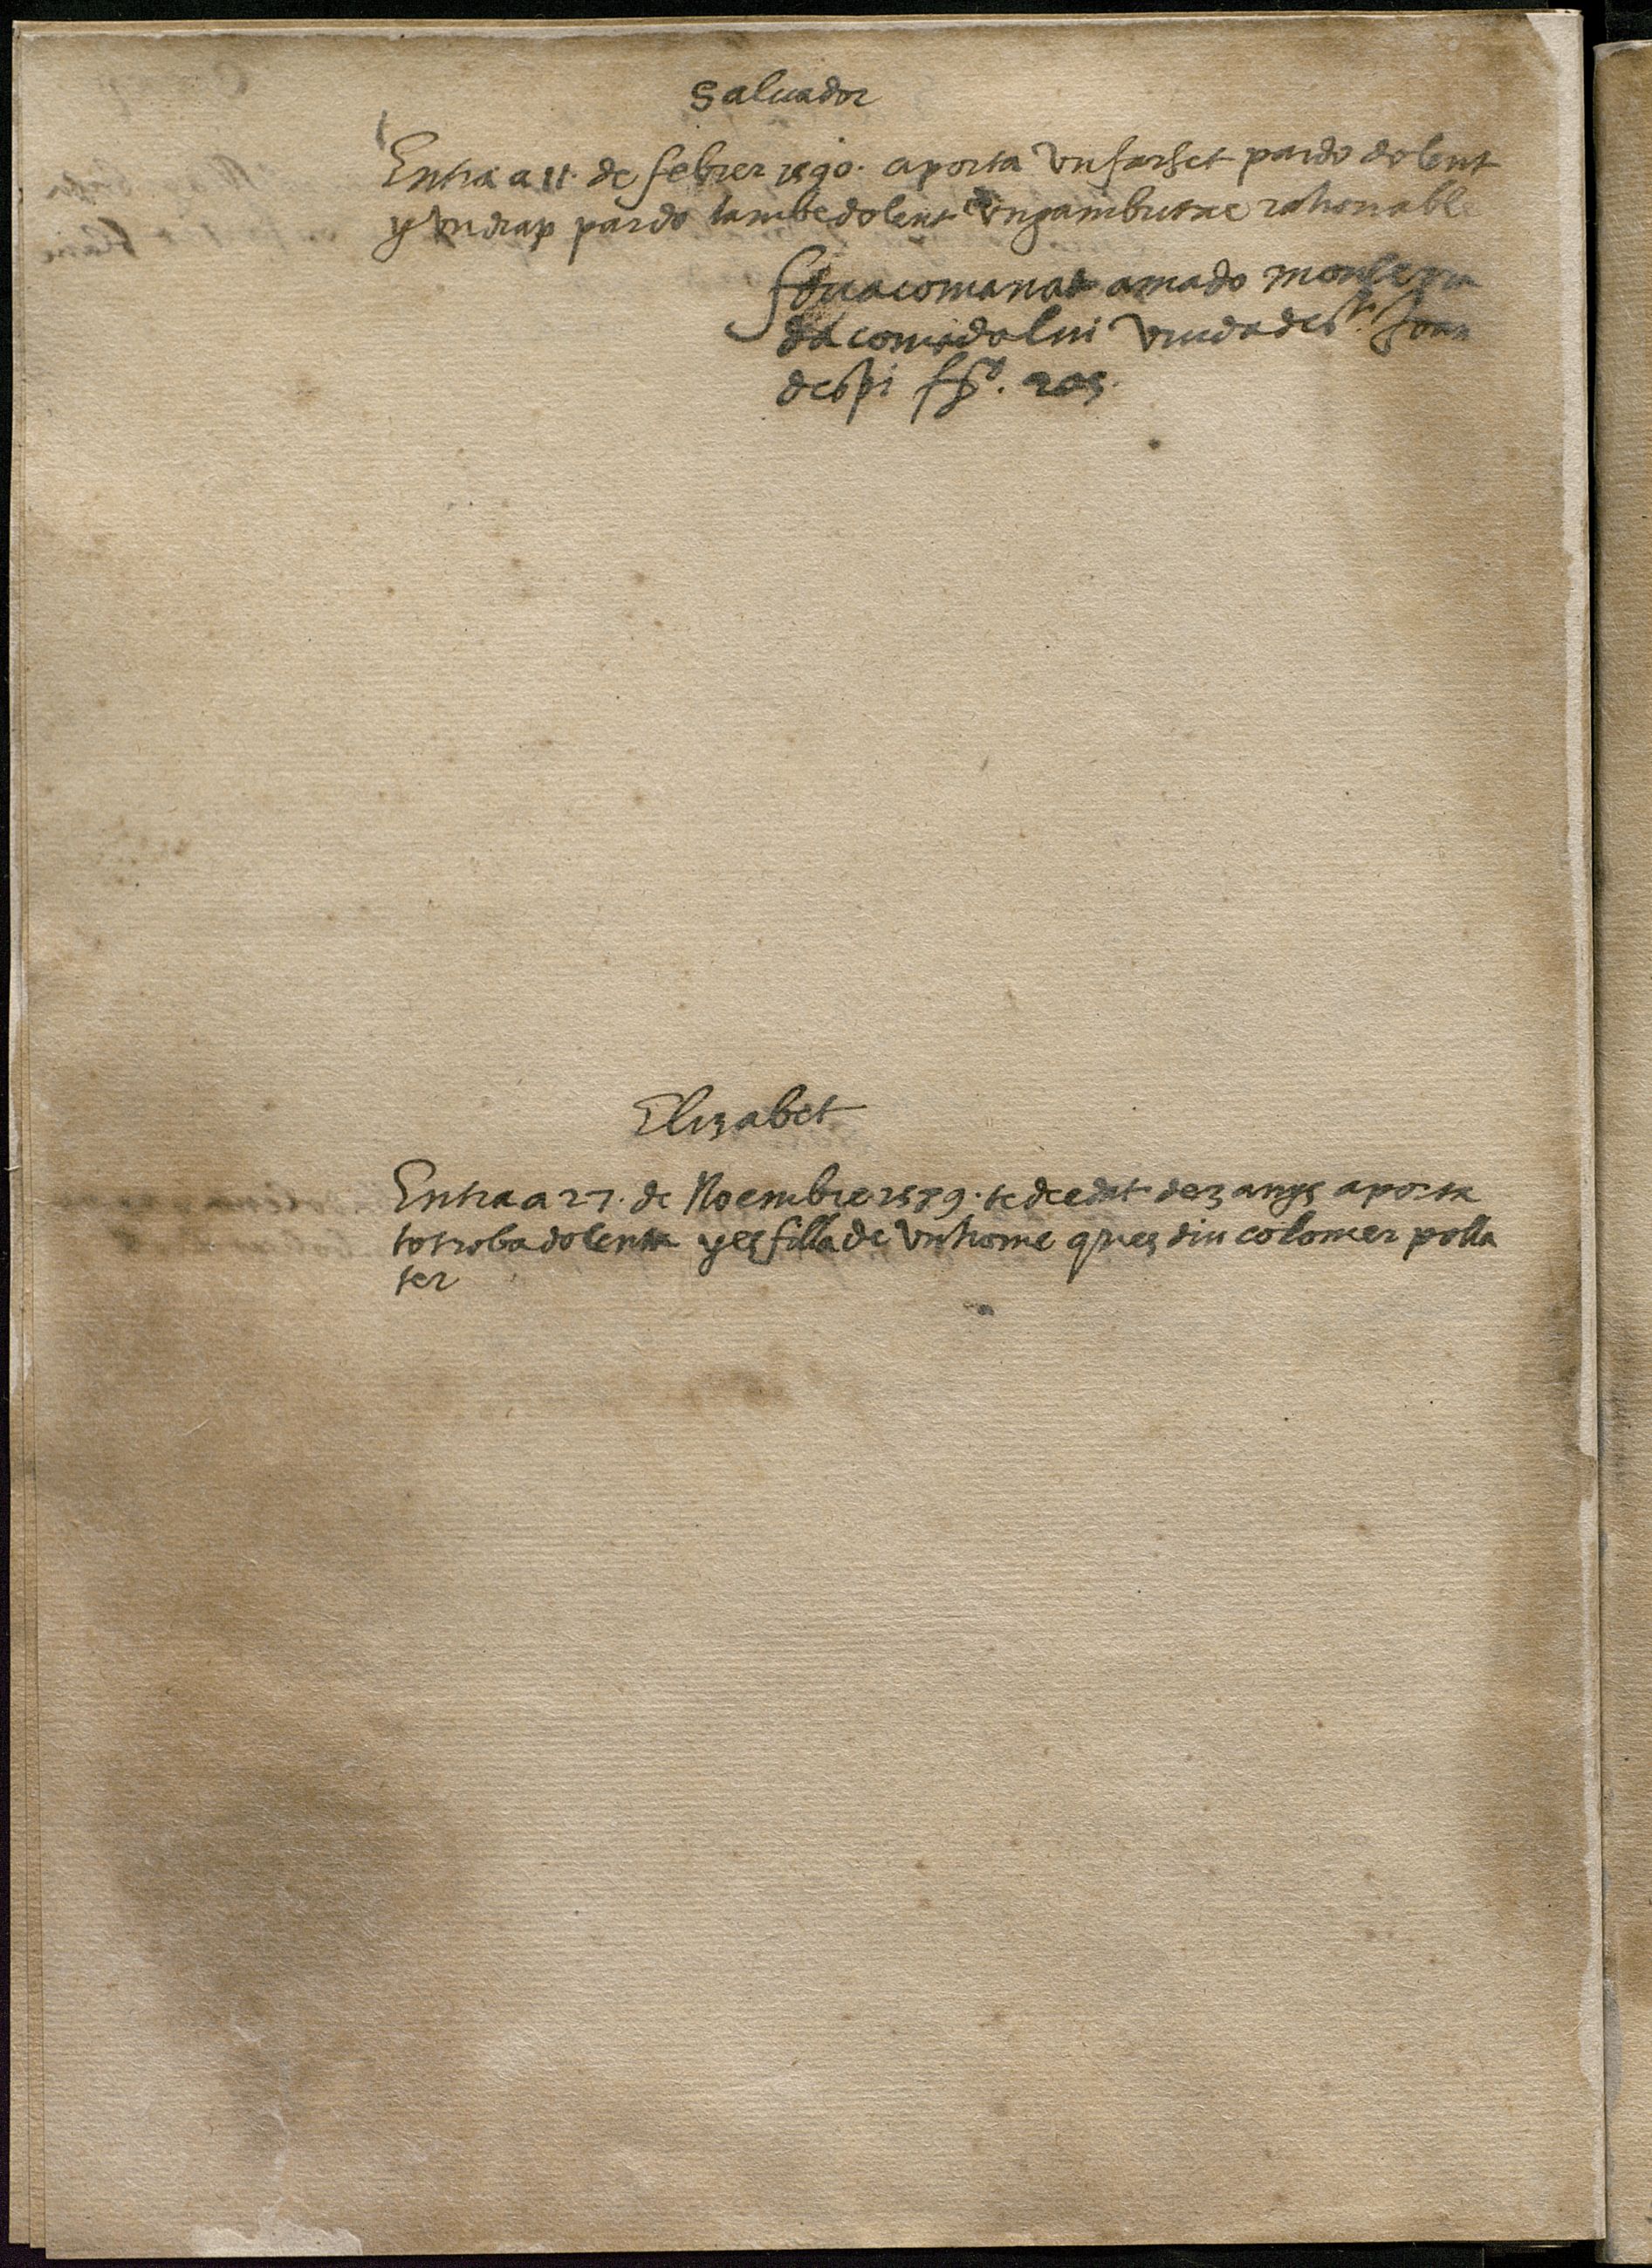 Saluador
Entra a 11 de febrer 1590. aporta vn farset pardo dolent
y vn drap pardo tambe dolent vn gambutxe rahonable
fou acomanat a mado
viuda de st. Joan
despi
Elizabet
Entra a 27. de Noembre 1589. te de edat dez anys aporta
tot roba dolenta y es filla de vn home ques diu colomer polla
ser